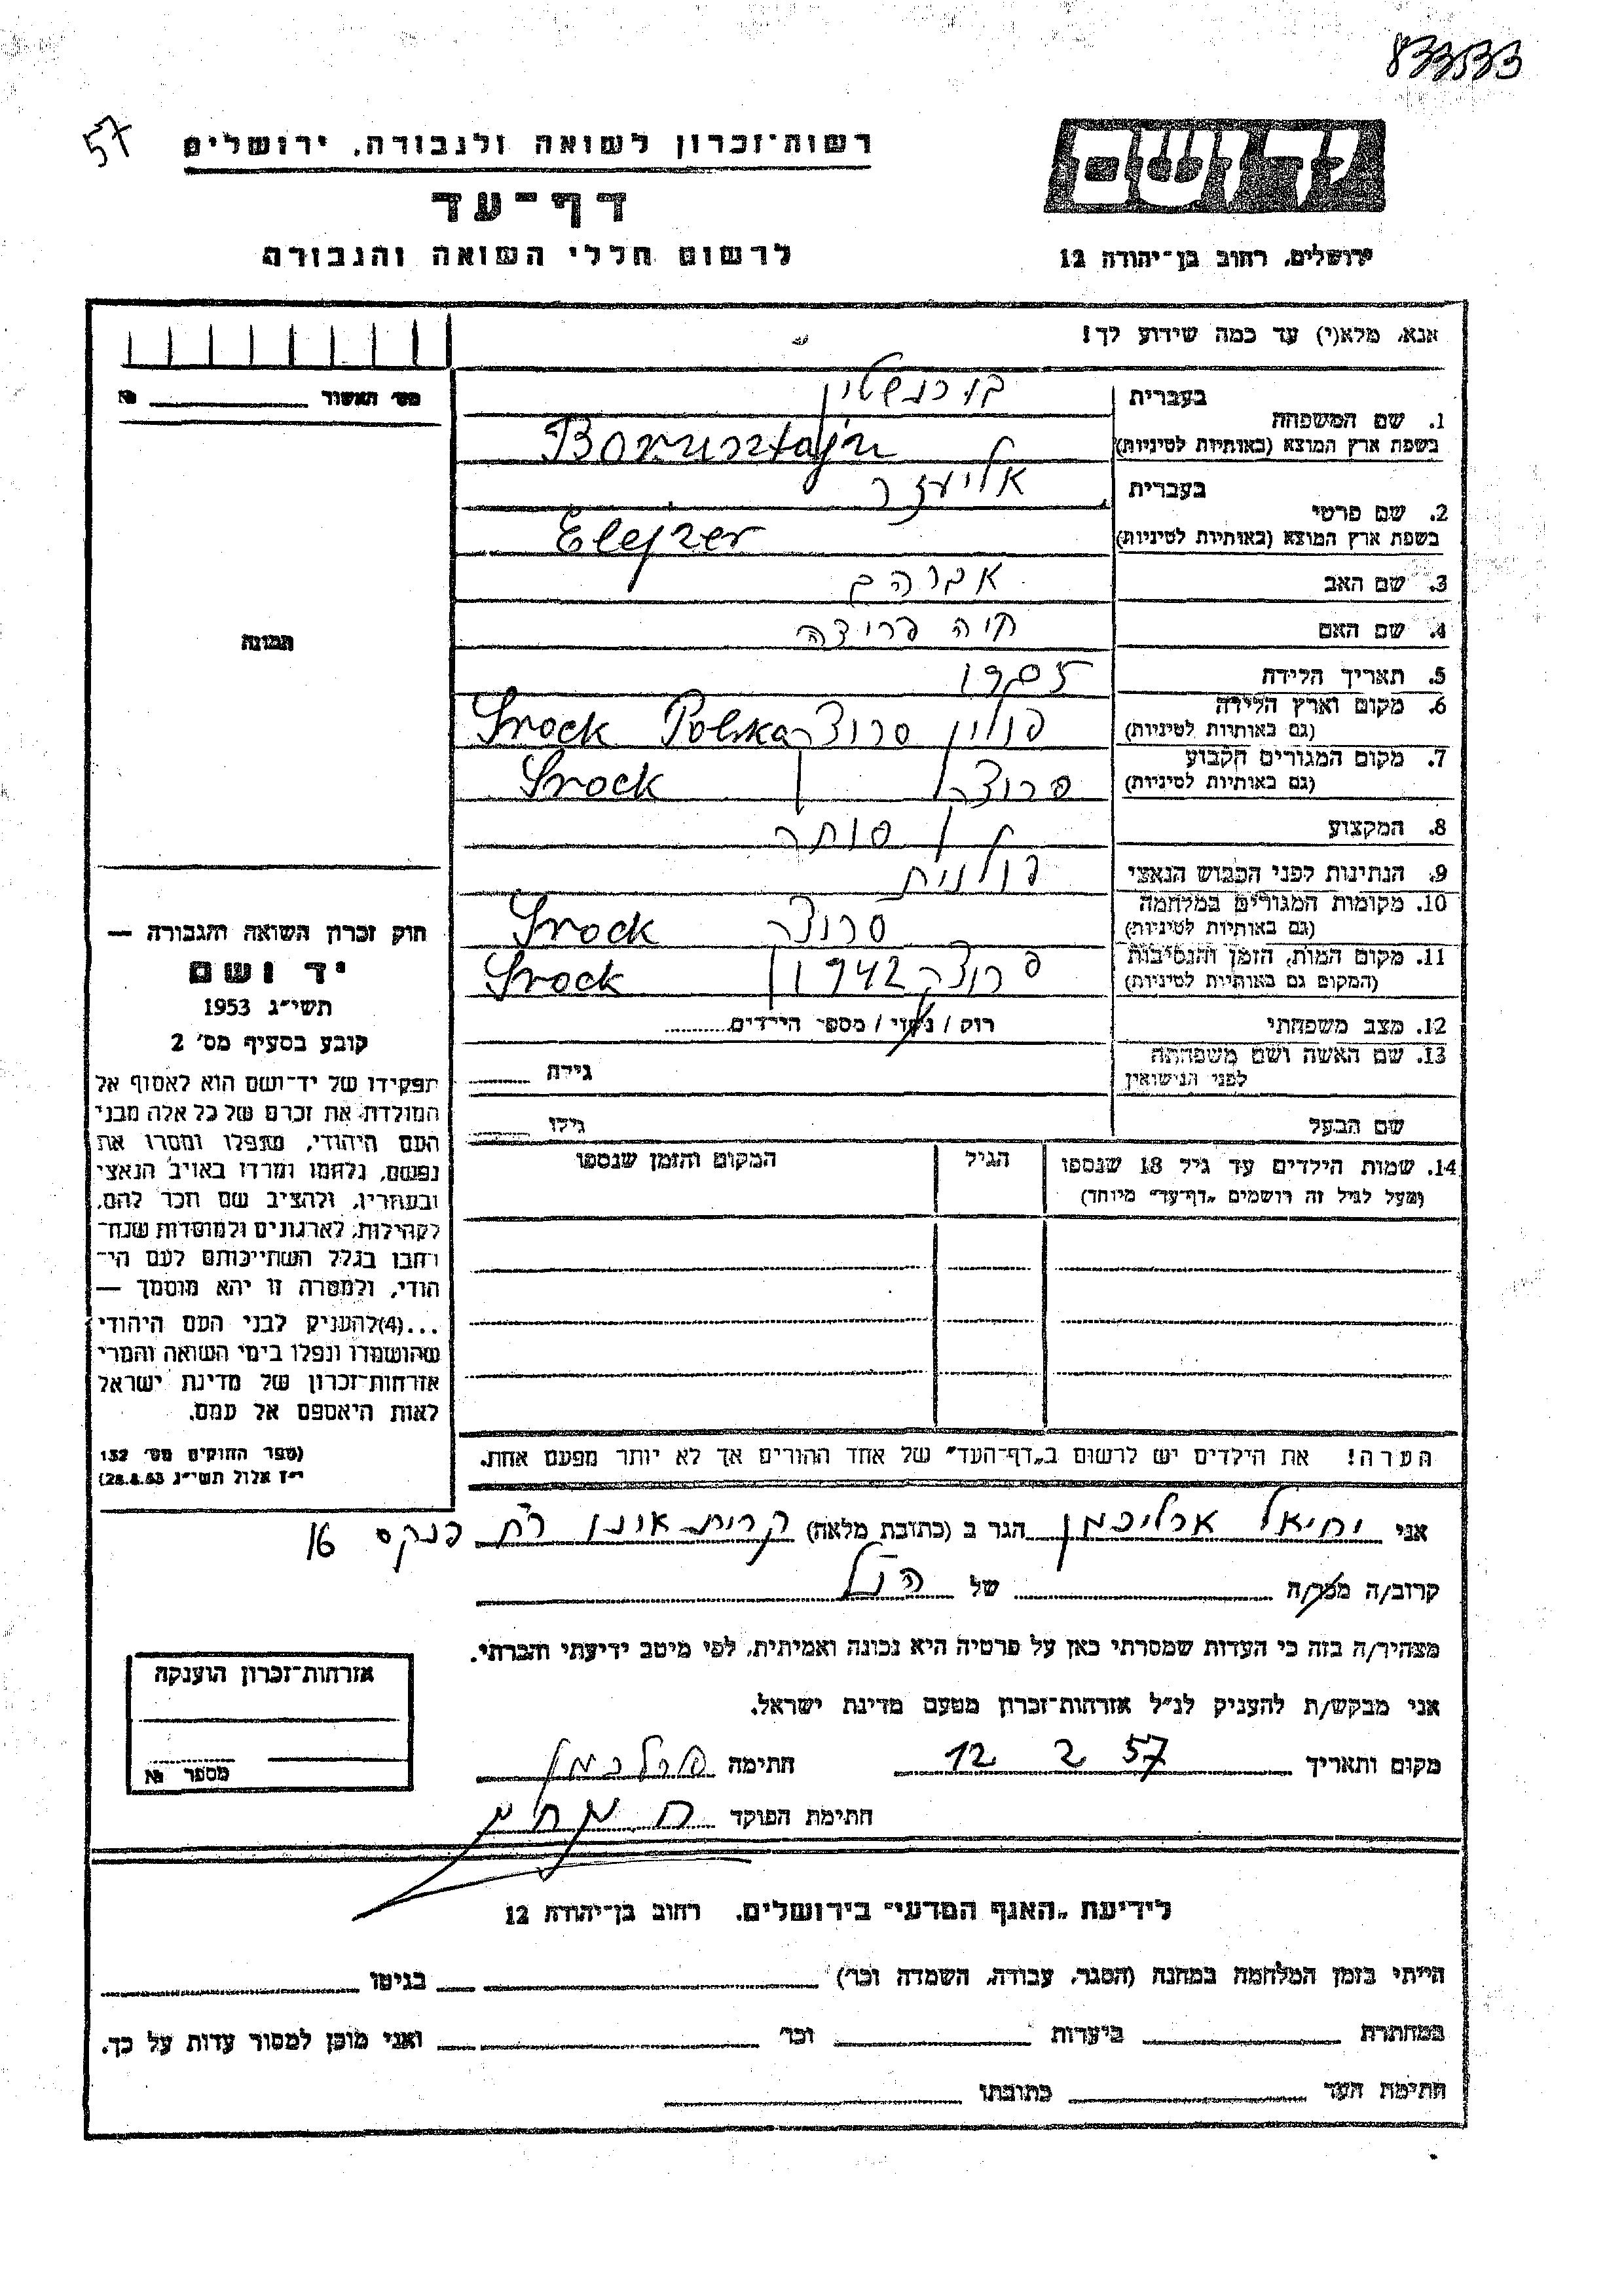 833533
57
רשות־זכרון לשואה ולגבורה, ירושלים
דף־עד
לרשום חללי השואה והגבורה
יד ושם
ירושלים, רחוב בן־יהודה 12
אנא, מלא(י) עד כמה שידוע לך!
מס' האשור №
1. שם המשפחה
בעברית
בשפת ארץ המוצא (באותיות לטיניות)
Borusztajn
2. שם פרטי
בעברית אליעזר
בשפת ארץ המוצא (באותיות לטיניות) Elejzer
3. שם האב אברהם
4. שם האם
5. תאריך הלידה 1905
6. מקום וארץ הלידה
(גם באותיות לטיניות)
פולין סרוצק Srock Polska
7. מקום המגורים הקבוע
(גם באותיות לטיניות)
סרוצק Srock
8. המקצוע סוחר
9. הנתינות לפני הכבוש הנאצי פולנית
10. מקומות המגורים במלחמה
(גם באותיות לטיניות)
סרוצק Srock
11. מקום המות, הזמן והנסיבות
(המקום גם באותיות לטיניות)
סרוצק 1942 Srock
12. מצב משפחתי
רוק / נשוי / מספר הילדים
13. שם האשה ושם משפחתה
לפני הנישואין
גילה
שם הבעל
גילו
14. שמות הילדים עד גיל 18 שנספו
(מעל לגיל זה רושמים „דף־עד" מיוחד)
הגיל
המקום והזמן שנספו
הערה! את הילדים יש לרשום ב„דף־העד" של אחד ההורים אך לא יותר מפעם אחת.
תמונה
חוק זכרון השואה והגבורה —
יד ושם
תשי"ג 1953
קובע בסעיף מס' 2
תפקידו של יד־ושם הוא לאסוף אל
המולדת את זכרם של כל אלה מבני
העם היהודי, שנפלו ומסרו את
נפשם, נלחמו ומרדו באויב הנאצי
ובעוזריו, ולהציב שם וזכר להם,
לקהילות, לארגונים ולמוסדות שנח־
רבו בגלל השתייכותם לעם הי־
הודי, ולמטרה זו יהא מוסמך —
...(4)להעניק לבני העם היהודי
שהושמדו ונפלו בימי השואה והמרי
אזרחות־זכרון של מדינת ישראל
לאות היאספם אל עמם.
(ספר החוקים מס' 132
י"ז אלול תשי"ג 28.8.53)
אני יחיאל הגר ב (כתובת מלאה) קרית אונו רח פנקס 16
קרוב/ה מכר/ה של הנ"ל
מצהיר/ה בזה כי העדות שמסרתי כאן על פרטיה היא נכונה ואמיתית, לפי מיטב ידיעתי והכרתי.
אני מבקש/ת להעניק לנ"ל אזרחות־זכרון מטעם מדינת ישראל.
מקום ותאריך 12 2 57 חתימה
חתימת הפוקד
אזרחות־זכרון הוענקה
מספר №
לידיעת „האגף המדעי" בירושלים, רחוב בן־יהודה 12
הייתי בזמן המלחמה במחנה (הסגר, עבודה, השמדה וכו') בגיטו
במחתרת ביערות וכו' ואני מוכן למסור עדות על כך.
חתימת העד כתובתו